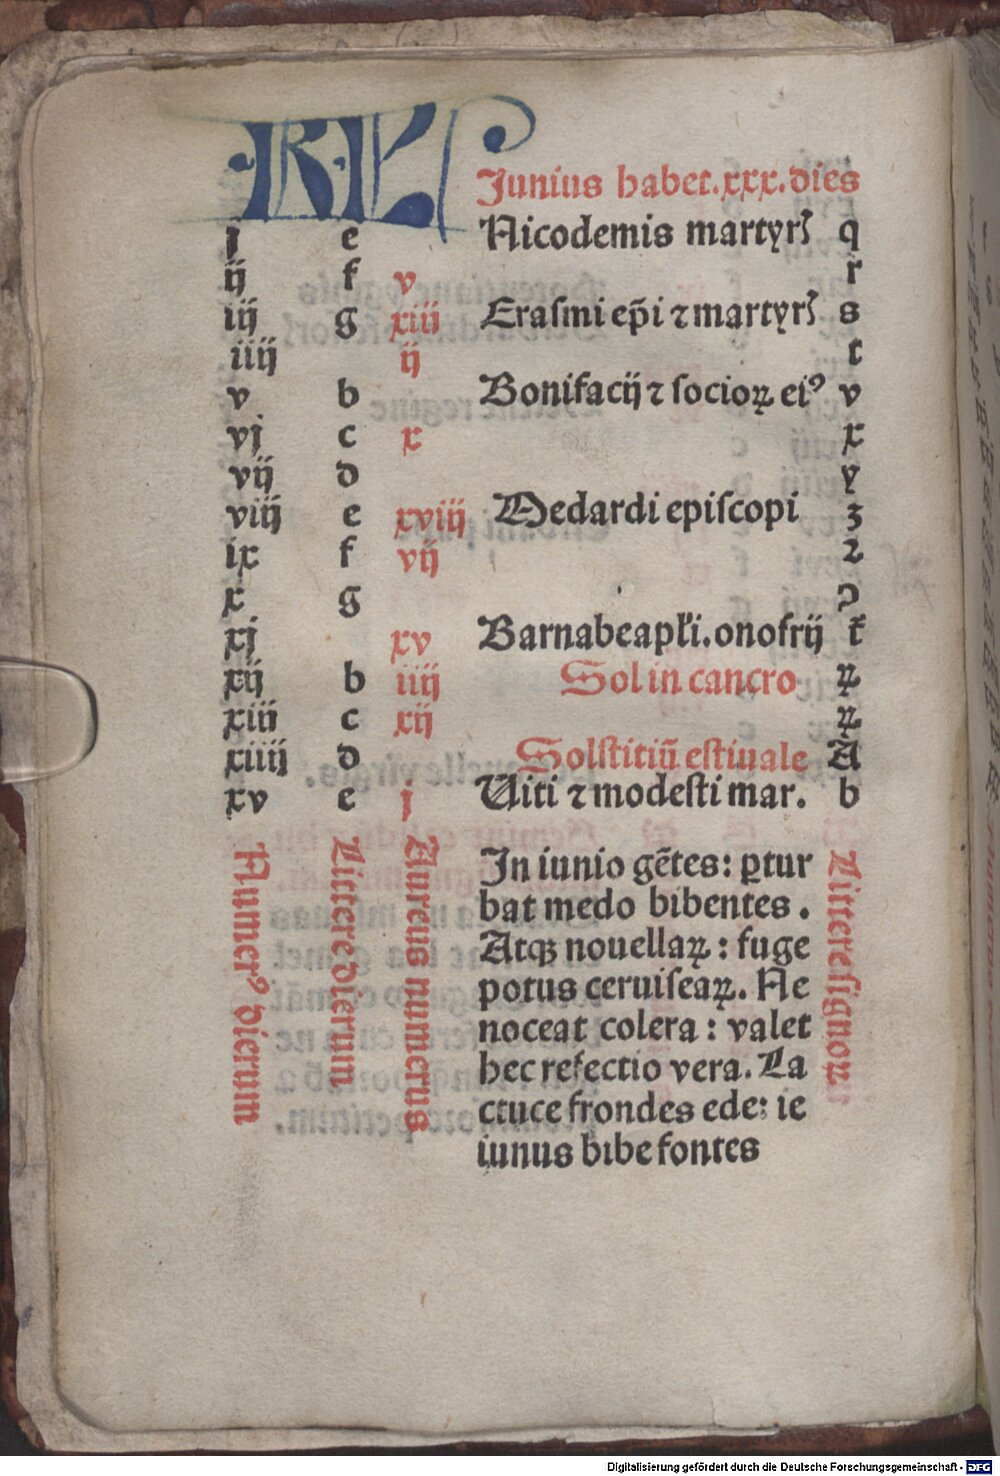 KL Junius habet.xxx.dies
j e Nicodemis martyrꝭ q
ij f v r
iij g xiij Erasmi ep̄i ⁊ martyrꝭ s
iiij ij t
v b Bonifacij ⁊ socioꝝ eiꝰ v
vj c x x
vij d y
viij e xviij Medardi episcopi z
ix f vij 2
x g ɔ
xj xv Barnabe apl'i.onofrij t̄
xij b iiij Sol in cancro ꝝ
xiij c xij ꝝ
xiiij d Solstitiū estiuale A
xv e j Uiti ⁊ modesti mar. b
Numerꝰ dierum
Littere dierum
Aureus numerus
In iunio gētes: ꝑtur
bat medo bibentes.
Atqꝫ nouellaꝝ: fuge
potus ceruiseaꝝ. Ne
noceat colera: valet
hec refectio vera. La
ctuce frondes ede: ie
iunus bibe fontes
Littere signoꝝ
Digitalisierung gefördert durch die Deutsche Forschungsgemeinschaft - DFG